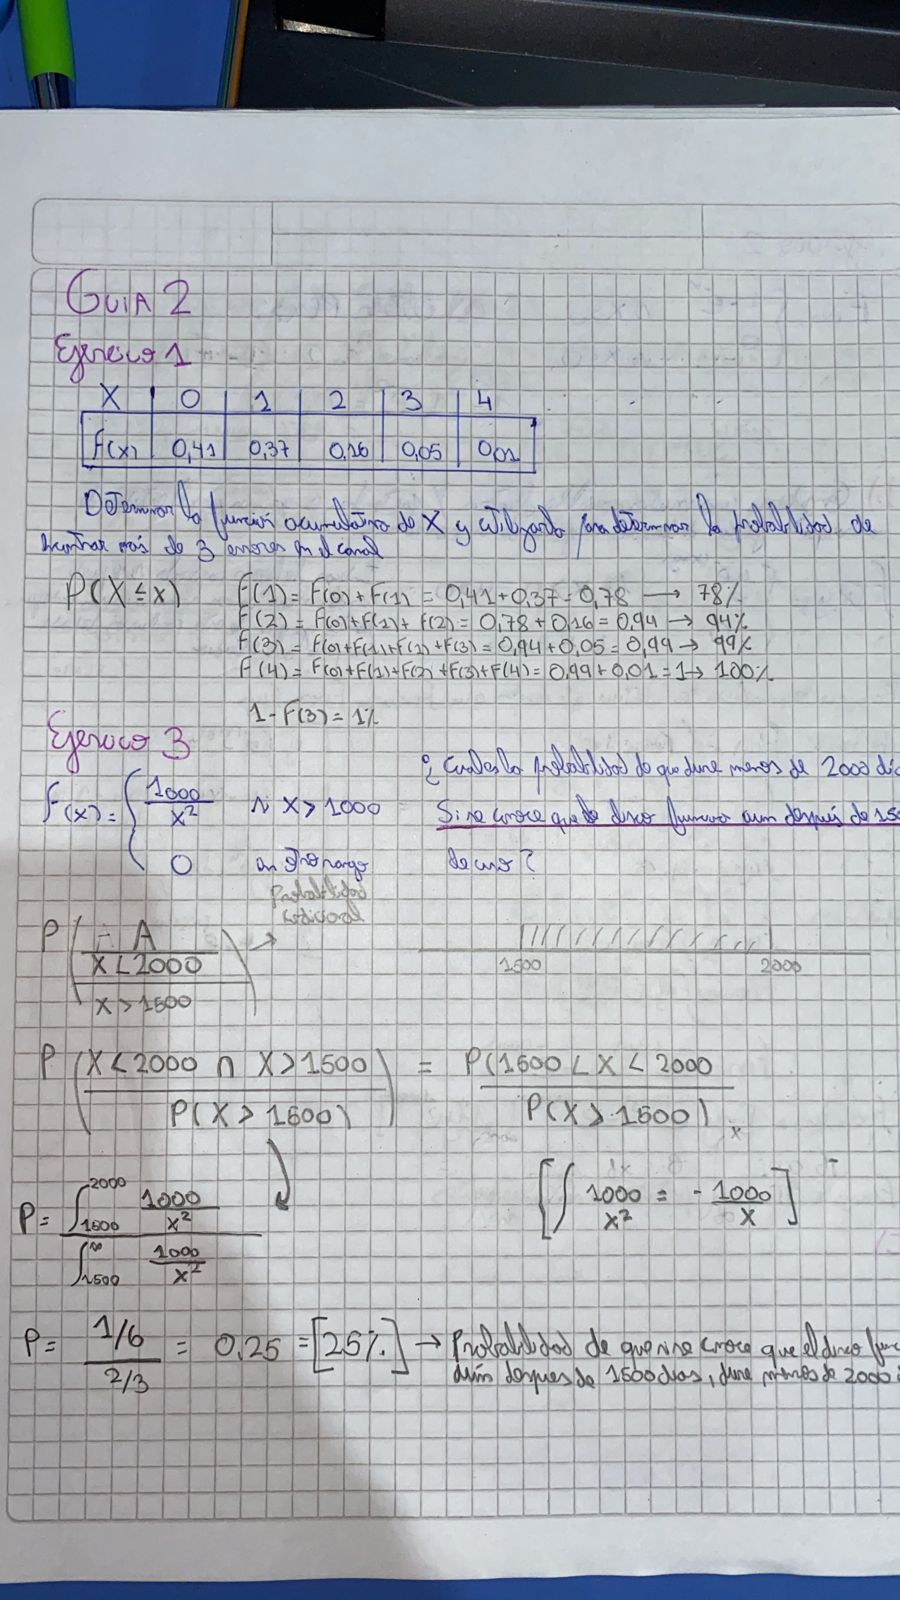 GUIA 2
Ejercicio 1
X 0 1 2 3 4
f(x) 0,41 0,37 0,16 0,05 0,01
Determinar la función acumulativa de X y utilizarla para determinar la probabilidad de
encontrar más de 3 errores en el canal
P(X ≤ x) F(1) = f(0) + f(1) = 0,41 + 0,37 = 0,78 → 78%
F(2) = f(0) + f(1) + f(2) = 0,78 + 0,16 = 0,94 → 94%
F(3) = f(0) + f(1) + f(2) + f(3) = 0,94 + 0,05 = 0,99 → 99%
F(4) = f(0) + f(1) + f(2) + f(3) + f(4) = 0,99 + 0,01 = 1 → 100%
1 - F(3) = 1%
Ejercicio 3
¿Cual es la probabilidad de que dure menos de 2000 día
f(x) = { 1000/x² si x > 1000
Si se conoce que el disco funciona aun después de 150
0 en otro rango
de uso?
Probabilidad
condicional
P ( A
X < 2000 / X > 1500 ) →
1500 2000
P ( X < 2000 ∩ X > 1500 / P(X > 1500) ) = P(1500 < X < 2000 / P(X > 1500)
P = ∫₁₅₀₀²⁰⁰⁰ 1000/x² / ∫₁₅₀₀^∞ 1000/x²
[ ∫ 1000/x² = - 1000/x ]
P = 1/6 / 2/3 = 0,25 = [25%] → Probabilidad de que si se conoce que el disco func
aún después de 1500 días, dure menos de 2000